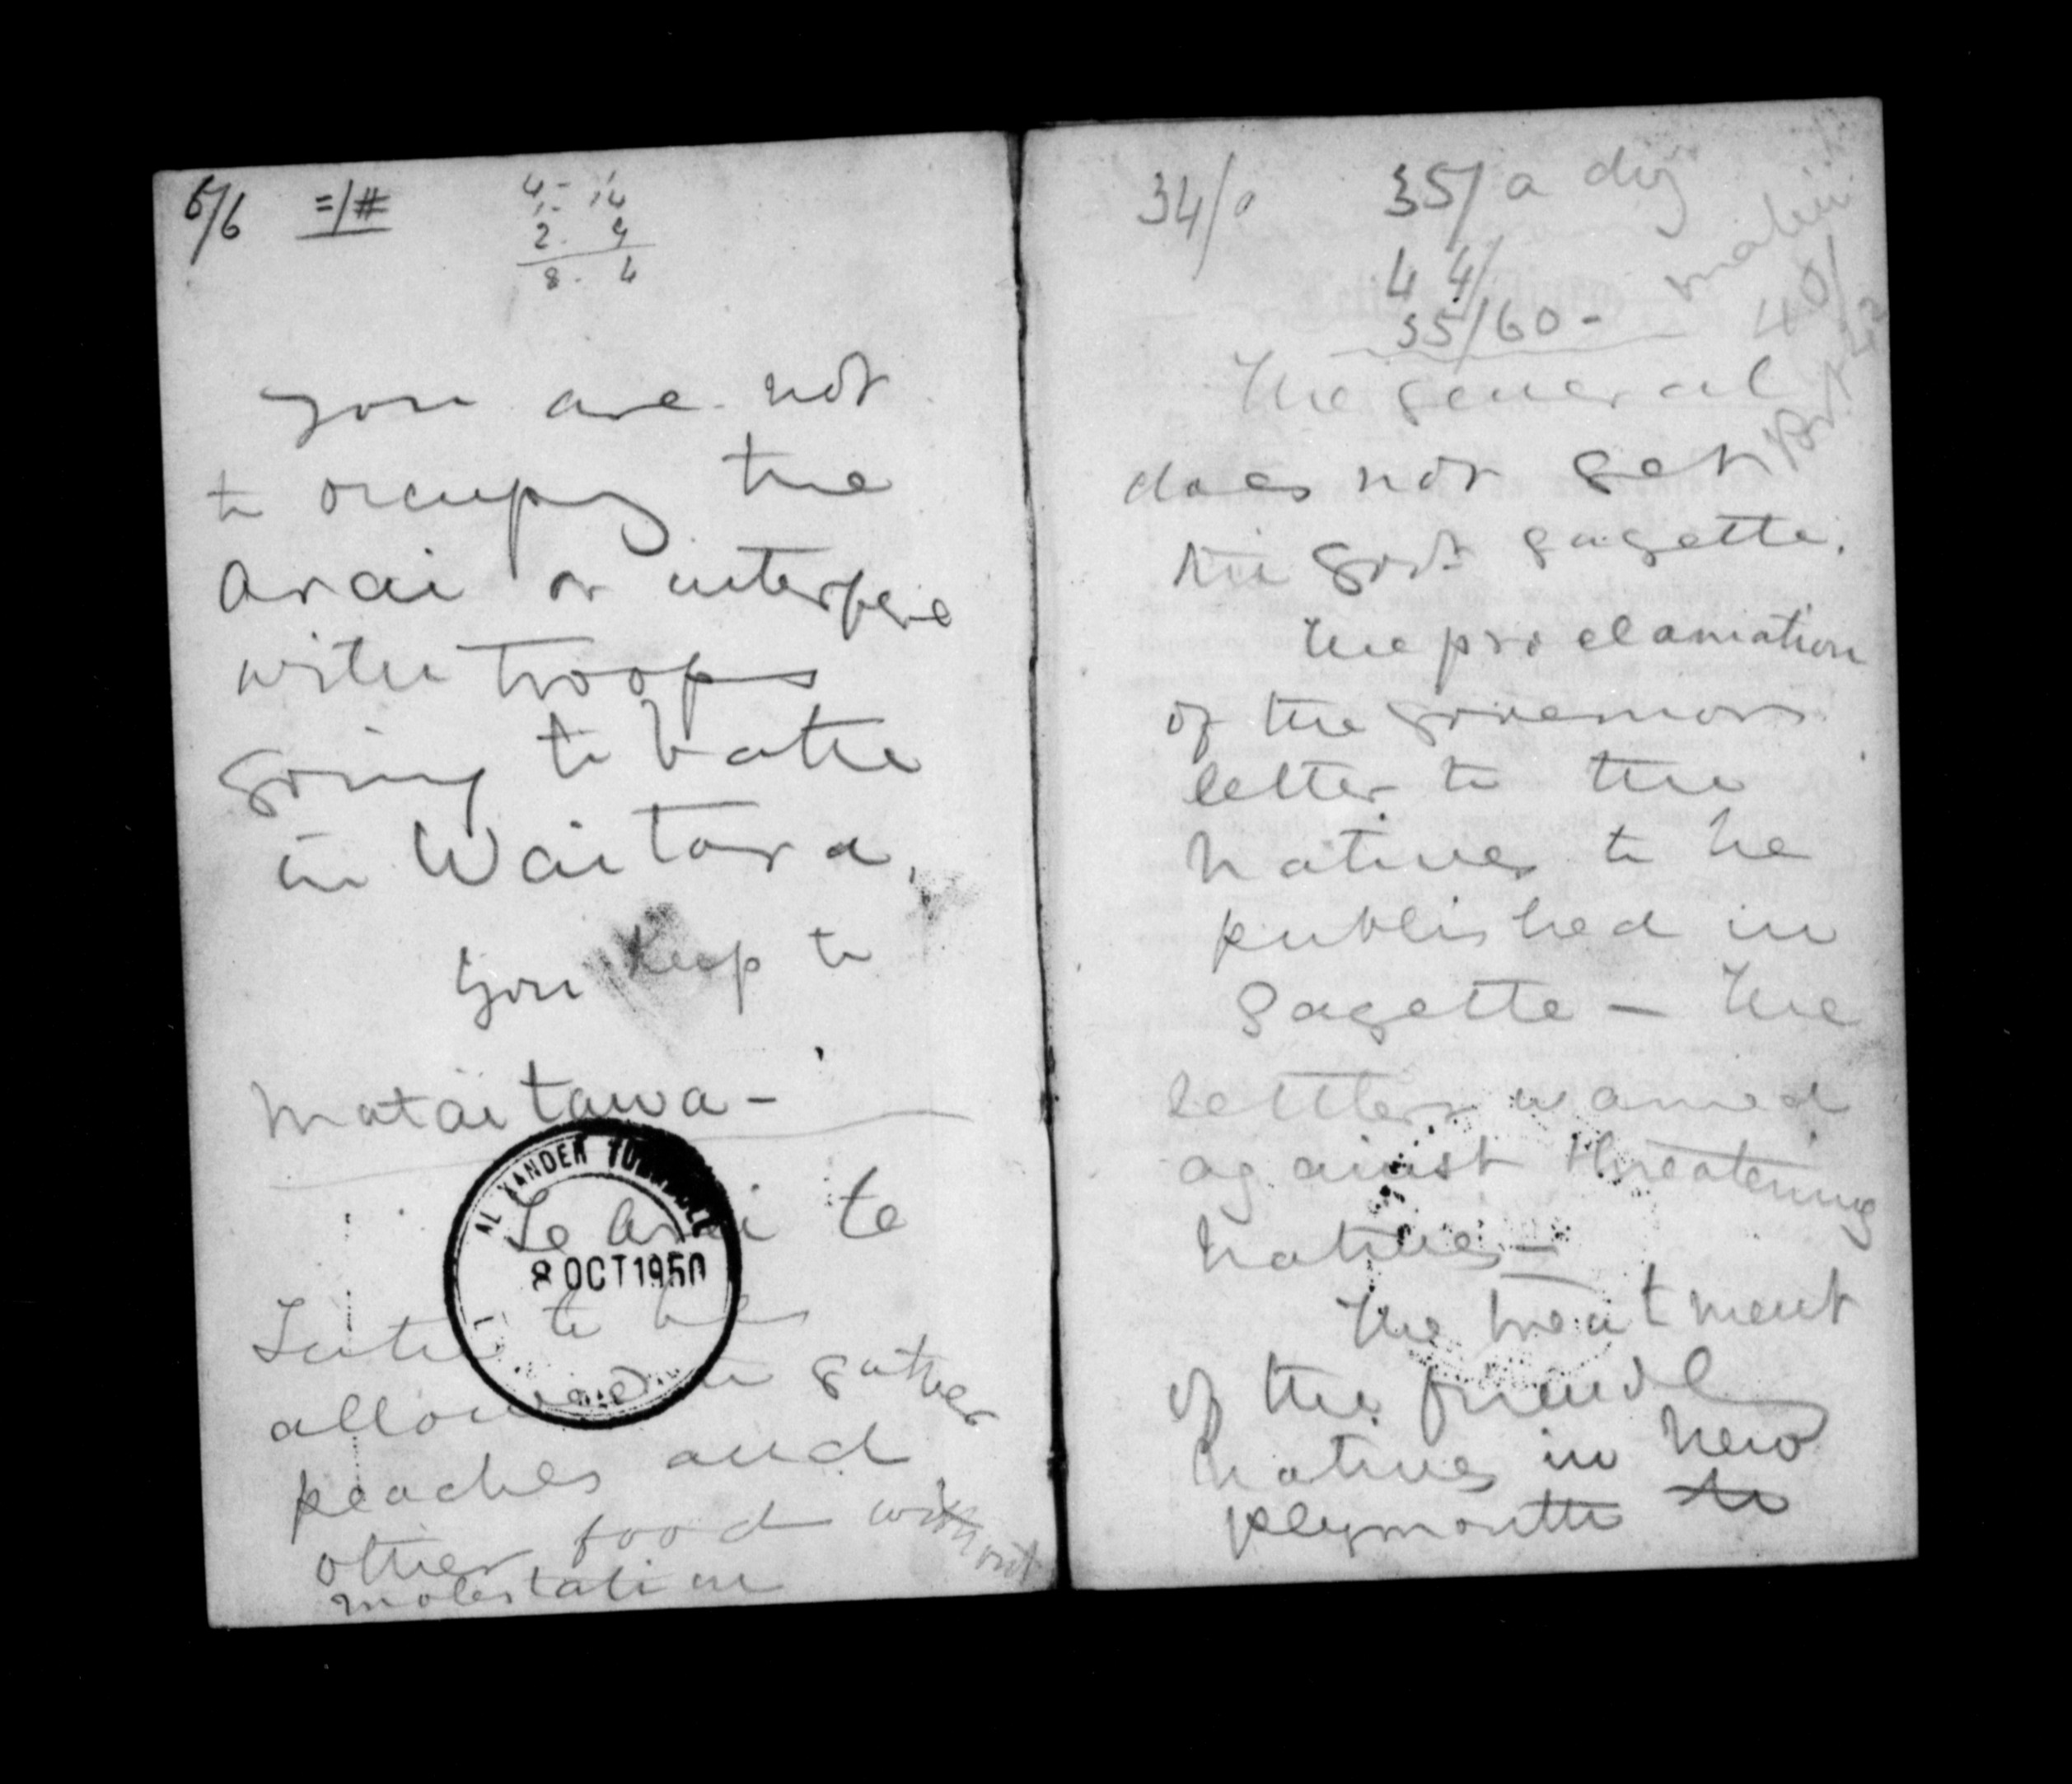 6/6 =/#
4 - 14
2 - 9
8 - 4
you are not
to occupy the
Arai or interfere
with troops
going to bathe
in Waitara.
You keep to
Mataitawa -
Te Arei te
ALEXANDER TURNBULL
8 OCT 1950
to be
allowed to gather
peaches and
other food without
molestation
34/ 35/ a day
44/
35/60 -
40/
The general
does not get
the Govt gazette.
the proclamation
of the governors
letter to the
natives to be
published in
Gazette - The
settlers warned
against threatening
natives -
The treatment
of the friendly
natives in New
Plymouth to